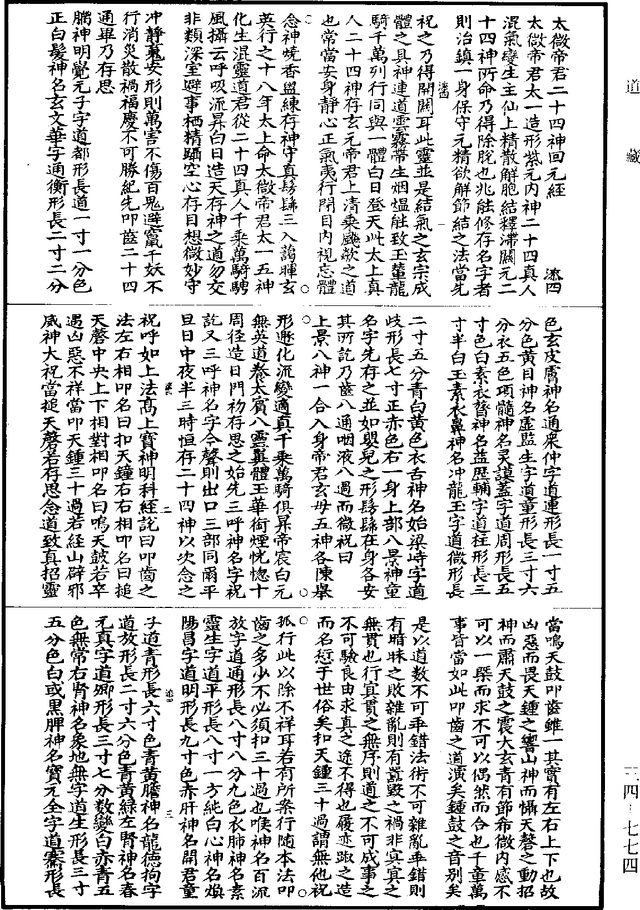 道藏
太微帝君二十四神回元經 添四
太微帝君太一造形紫元內神二十四真人
混氣變生主仙上精散解胞結釋滯關元二
十四神所命乃得除脫也兆能修存名字者
則治鎮一身保守元精欲解節結之法當先
祝之乃得開關耳此靈並是結氣之玄宗成
體之具神連道雲霧帶生烟煴能致玉輦龍
騎千萬列行同與一體白日登天此太上真
人二十四神存玄元帝君上清乘飈歘之道
也常當安身靜心正氣夷行閉目內視忘體
念神燒香盥練存神守真髣髴三入謁暉玄
英行之十八年太上命太微帝君太一五神
化生混靈道君從二十四真人千乘萬騎騁
風攝云呼吸流昇白日造天存神之道勿交
非類深室避事栖精踊空心存目想微妙守
冲靜安形則萬害不傷百鬼避竄千妖不
行消災散禍福慶不可勝紀先叩齒二十四
通畢乃存思
腦神明覺元子字道都形長道一寸一分色
正白髮神名玄文華字通衡形長二寸二分
色玄皮膚神名通衆仲字道運形長一寸五
分色黃目神名虛監生字道童形長三寸六
分衣五色項髓神名灵謨蓋字道周形長五
寸色白素衣膂神名益歷輔字道柱形長三
寸半白玉素衣鼻神名冲龍玉字道微形長
二寸五分青白黃色衣舌神名始梁峙字道
歧形長七寸正赤色右一身上部八景神童
名字先存之並如嬰兒之形髣髴在身各安
其所訖乃齒八通咽液八過而微祝曰
上景八神一合入身帝君玄母五神各陳舉
形遯化流變適真千乘萬騎俱昇帝宸白元
無英道養太賓八靈翼體玉華銜煙恍惚十
周徑造日門初存思之始先三呼神名字祝
訖又三呼神名字令聲則出口三部同爾平
旦日中夜半三時恒存二十四神以次念之
祝呼如上法高上寶神明科經訣曰叩齒之
法左右相叩名曰扣天鐘右右相叩名曰搥
天磬中央上下相對相叩名曰鳴天鼓若卒
遇凶惡不祥當叩天鍾三十過若經山辟邪
威神大祝當搥天磬若存思念道致真招靈
當鳴天鼓叩齒雖一其實有左右上下也故
凶惡而畏天鍾之響山神而懾天磬之動招
神而肅天鼓之震大玄青有節布微內感不
可以一槩而求不可以偶然而合也千童萬
事皆當如此叩齒之道演矣鍾鼓之音別矣
是以道數不可乖錯法術不可雜亂乖錯則
有暗昧之敗雜亂則有囂毀之禍非寘寘之
無貫也行宜貫之無序則道之不可成事之
不可驗良由求真之途不得也履之造
而名愆于世俗矣扣天鍾三十過謂無他祝
孤行此以除不祥耳若有所案行隨本法叩
齒之多少不必須扣三十過也喉神名百流
放字道通形長八寸八分九色衣肺神名素
靈生字道平形長八寸一方純白心神名煥
陽昌字道明形長九寸色赤肝神名開君童
子道青形長六寸色青黃膽神名龍德拘字
道放形長二寸六分色青黃綠左腎神名春
元真字道卿形長三寸七分数變白赤青五
色無常右腎神名象地無字道生形長三寸
五分色白或黑脾神名寶元全字道騫形長
三四－七七四